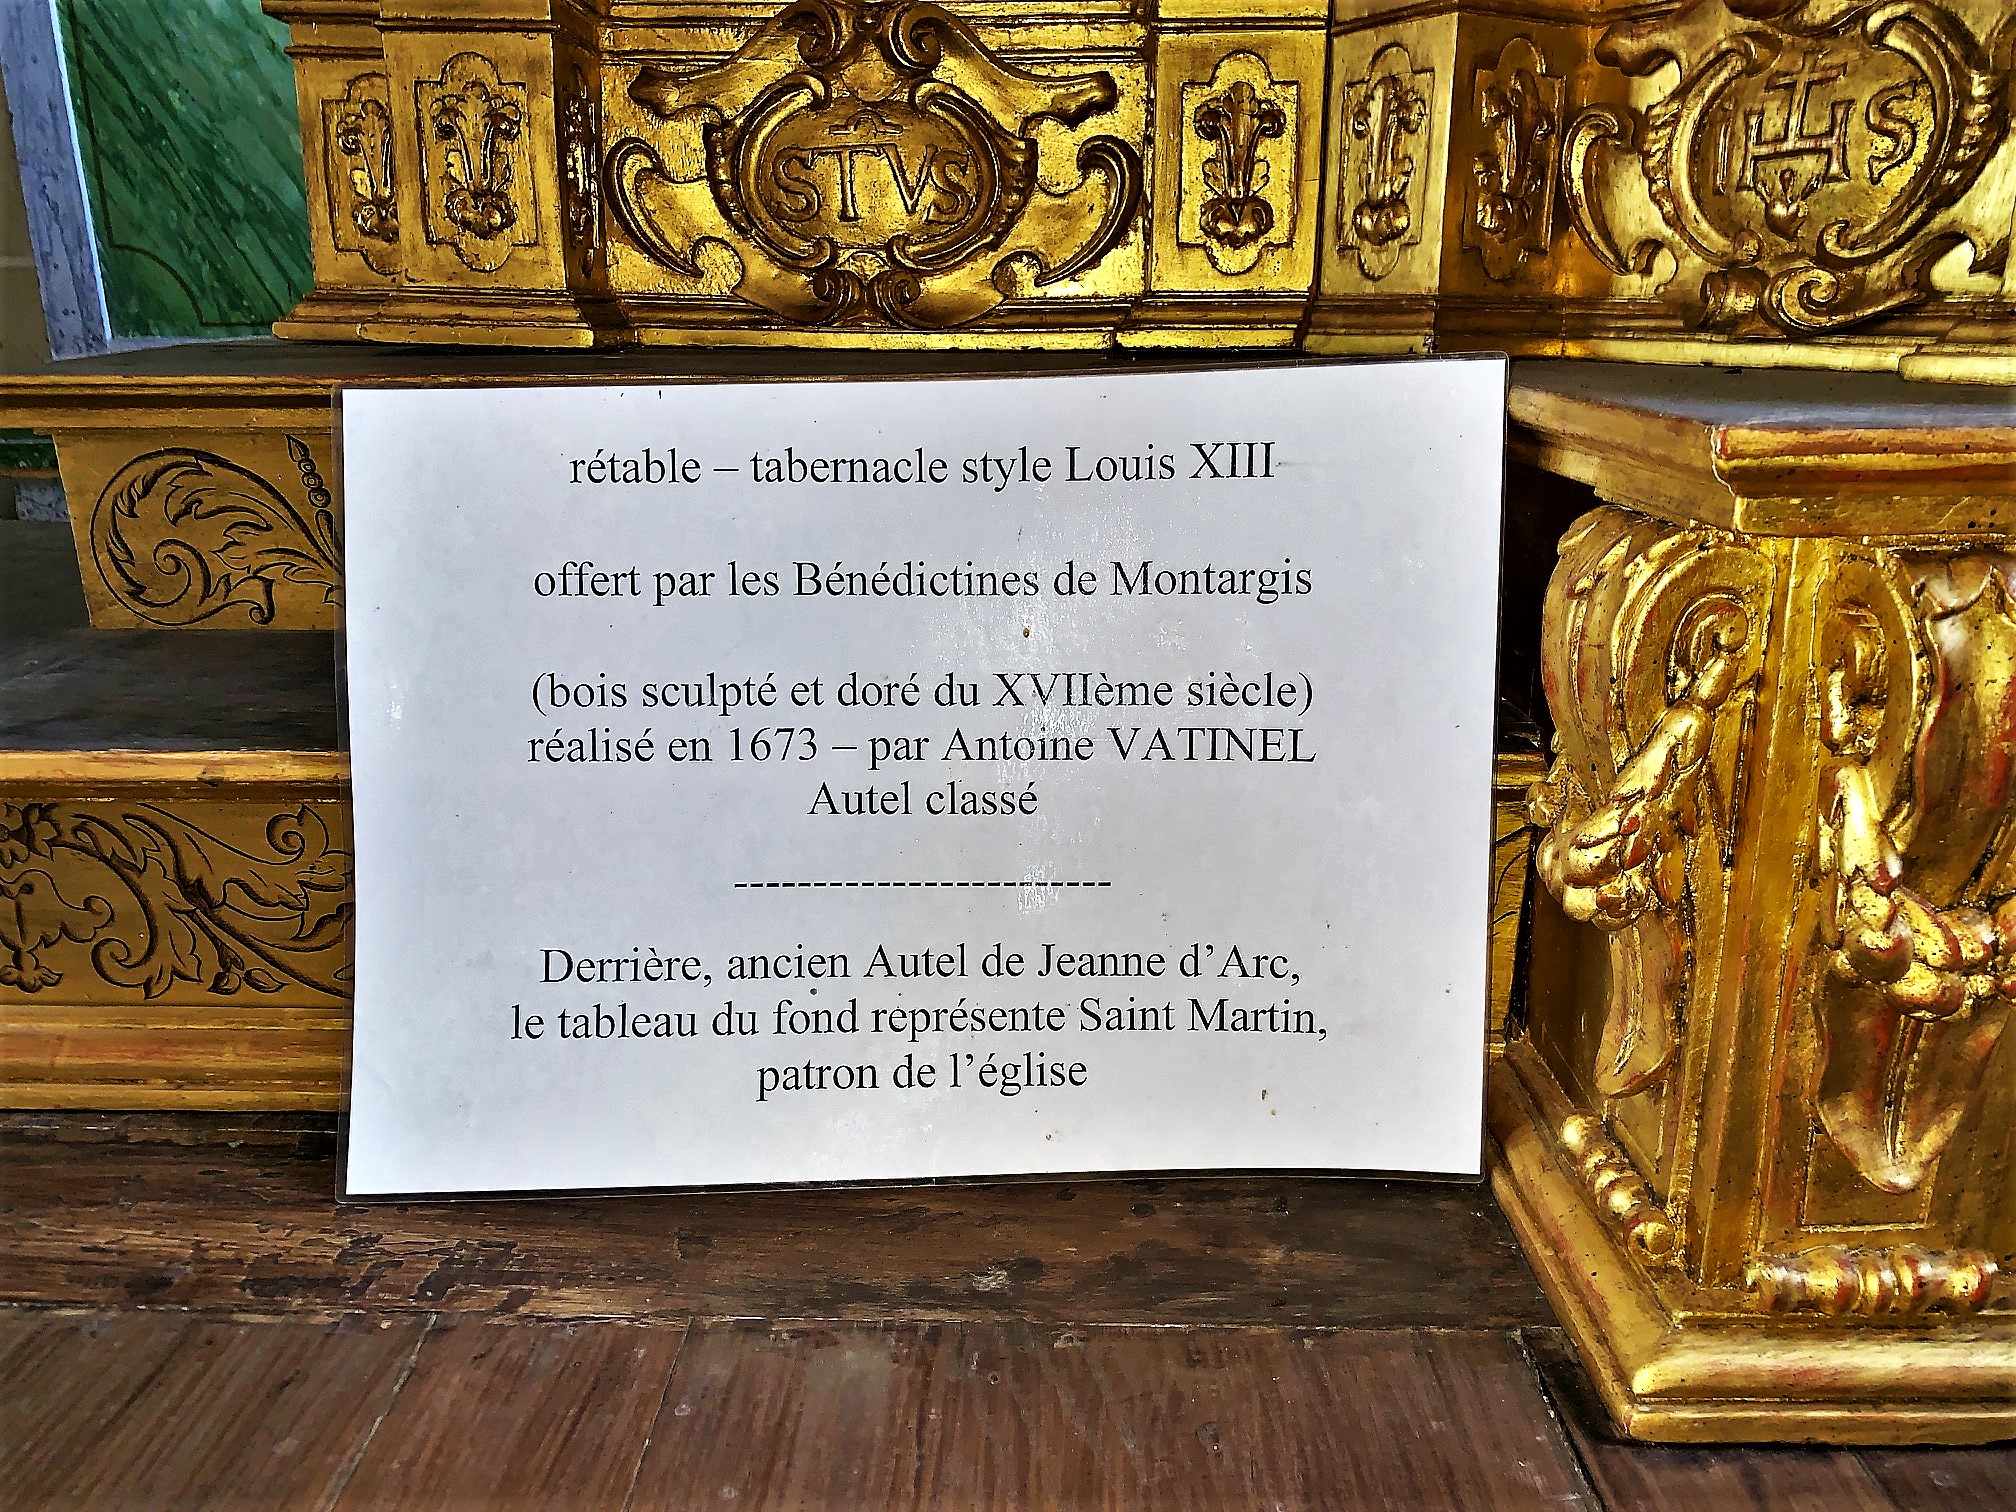 STVS
IHS
rétable – tabernacle style Louis XIII
offert par les Bénédictines de Montargis
(bois sculpté et doré du XVIIème siècle)
réalisé en 1673 – par Antoine VATINEL
Autel classé
------------------------
Derrière, ancien Autel de Jeanne d’Arc,
le tableau du fond représente Saint Martin,
patron de l’église